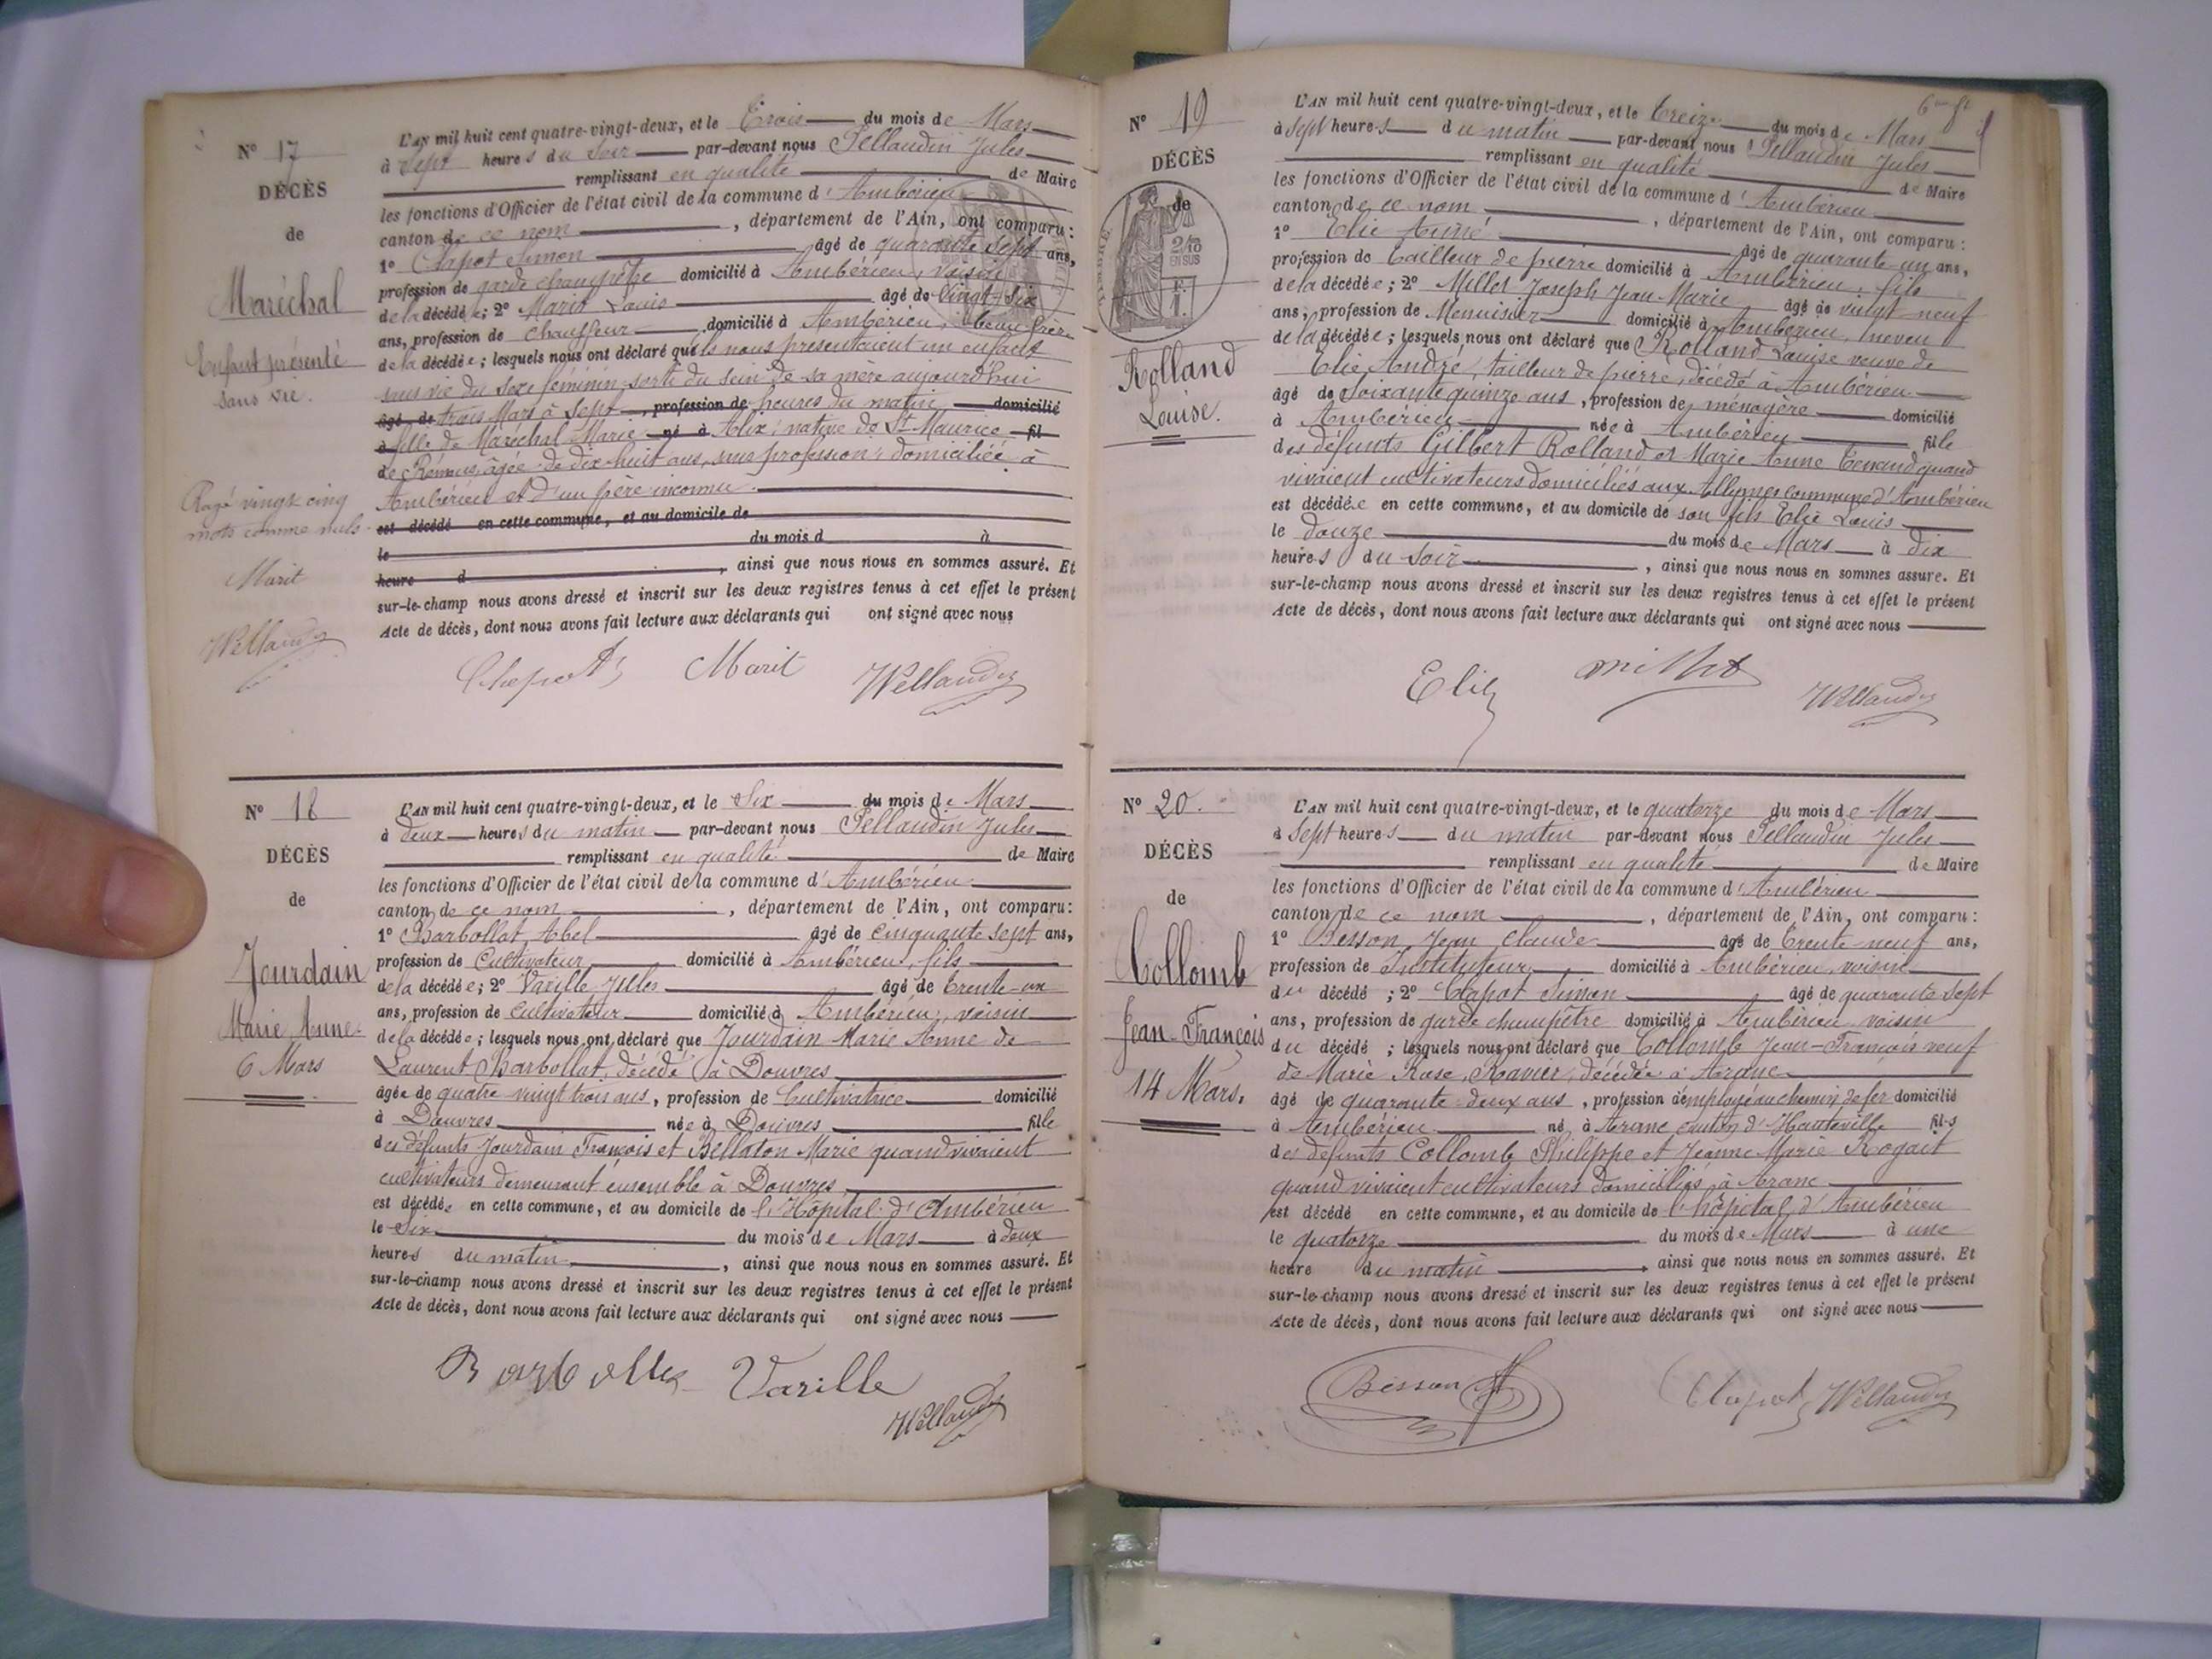 N° 17
DÉCÈS
de
Maréchal
Enfant présenté
sans vie.
Rayé vingt cinq
mots comme nuls.
Marit
L'AN mil huit cent quatre-vingt-deux, et le Trois du mois de Mars
à Sept heures du Soir par-devant nous Pellaudin Jules
remplissant en qualité de Maire
les fonctions d'Officier de l'état civil de la commune d'Ambérieu
canton de ce nom, département de l'Ain, ont comparu:
1° Clapot Simon âgé de quarante sept ans,
profession de garde champêtre domicilié à Ambérieu, voisin
de la décédée; 2° Marit Louis âgé de vingt-six
ans, profession de chauffeur domicilié à Ambérieu, beau frère
de la décédée; lesquels nous ont déclaré qu'ils nous présentaient un enfant
sans vie du sexe féminin, sorti du sein de sa mère aujourd'hui
âgé de trois Mars à Sept, profession de heures du matin domicilié
à fille de Maréchal Marie né à Alix, native de St Maurice fil
de Rémens, âgée de dix huit ans, sans profession, domiciliée à
Ambérieu et d'un père inconnu.
est décédé en cette commune, et au domicile de
le du mois d à
heure d, ainsi que nous nous en sommes assuré. Et
sur-le-champ nous avons dressé et inscrit sur les deux registres tenus à cet effet le présent
Acte de décès, dont nous avons fait lecture aux déclarants qui ont signé avec nous
Clapot Marit
N° 18
DÉCÈS
de
Jourdain
Marie Anne.
6 Mars
L'AN mil huit cent quatre-vingt-deux, et le Six du mois de Mars
à deux heures du matin par-devant nous Pellaudin Jules
remplissant en qualité de Maire
les fonctions d'Officier de l'état civil de la commune d'Ambérieu
canton de ce nom, département de l'Ain, ont comparu:
1° Barbollat Abel âgé de cinquante sept ans,
profession de Cultivateur domicilié à Ambérieu, fils
de la décédée; 2° Varille Jules âgé de trente-un
ans, profession de Cultivateur domicilié à Ambérieu, voisin
de la décédée; lesquels nous ont déclaré que Jourdain Marie Anne de
Laurent Barbollat, décédé à Douvres
âgée de quatre vingt trois ans, profession de Cultivatrice domicilié
à Douvres née à Douvres fille
des défunts Jourdain François et Bellaton Marie quand vivaient
cultivateurs demeurant ensemble à Douvres
est décédée en cette commune, et au domicile de l'Hôpital d'Ambérieu
le Six du mois de Mars à deux
heures du matin, ainsi que nous nous en sommes assuré. Et
sur-le-champ nous avons dressé et inscrit sur les deux registres tenus à cet effet le présent
Acte de décès, dont nous avons fait lecture aux déclarants qui ont signé avec nous
Varille
N° 19
DÉCÈS
de
2/10
EN SUS
F.
1.
Rolland
Louise.
L'AN mil huit cent quatre-vingt-deux, et le treize du mois de Mars
à Sept heures du matin par-devant nous Pellaudin Jules
remplissant en qualité de Maire
les fonctions d'Officier de l'état civil de la commune d'Ambérieu
canton de ce nom, département de l'Ain, ont comparu:
1° Elie Aimé âgé de quarante un ans,
profession de Tailleur de pierre domicilié à Ambérieu, fils
de la décédée; 2° Millet Joseph Jean Marie âgé de vingt neuf
ans, profession de Menuisier domicilié à Ambérieu, neveu
de la décédée; lesquels nous ont déclaré que Rolland Louise veuve de
Elie André, tailleur de pierre, décédé à Ambérieu
âgé de soixante quinze ans, profession de ménagère domicilié
à Ambérieu née à Ambérieu fille
des défunts Gilbert Rolland et Marie Anne quand
vivaient cultivateurs domiciliés aux Allymes commune d'Ambérieu
est décédée en cette commune, et au domicile de son fils Elie Louis
le douze du mois de Mars à dix
heures du soir, ainsi que nous nous en sommes assuré. Et
sur-le-champ nous avons dressé et inscrit sur les deux registres tenus à cet effet le présent
Acte de décès, dont nous avons fait lecture aux déclarants qui ont signé avec nous
Elie Millet
N° 20.
DÉCÈS
de
Collomb
Jean-François
14 Mars.
L'AN mil huit cent quatre-vingt-deux, et le quatorze du mois de Mars
à Sept heures du matin par-devant nous Pellaudin Jules
remplissant en qualité de Maire
les fonctions d'Officier de l'état civil de la commune d'Ambérieu
canton de ce nom, département de l'Ain, ont comparu:
1° Besson Jean Claude âgé de trente-neuf ans,
profession de Instituteur domicilié à Ambérieu, voisin
du décédé; 2° Clapot Simon âgé de quarante sept
ans, profession de garde champêtre domicilié à Ambérieu voisin
du décédé; lesquels nous ont déclaré que Collomb Jean-François veuf
de Marie Rose Ravier, décédée à Aranc
âgé de quarante-deux ans, profession d'employé au chemin de fer domicilié
à Ambérieu né à Aranc canton d'Hauteville fils
des défunts Collomb Philippe et Jeanne Marie Rogait
quand vivaient cultivateurs domiciliés à Aranc
est décédé en cette commune, et au domicile de l'hôpital d'Ambérieu
le quatorze du mois de Mars à une
heure du matin, ainsi que nous nous en sommes assuré. Et
sur-le-champ nous avons dressé et inscrit sur les deux registres tenus à cet effet le présent
Acte de décès, dont nous avons fait lecture aux déclarants qui ont signé avec nous
Besson Clapot